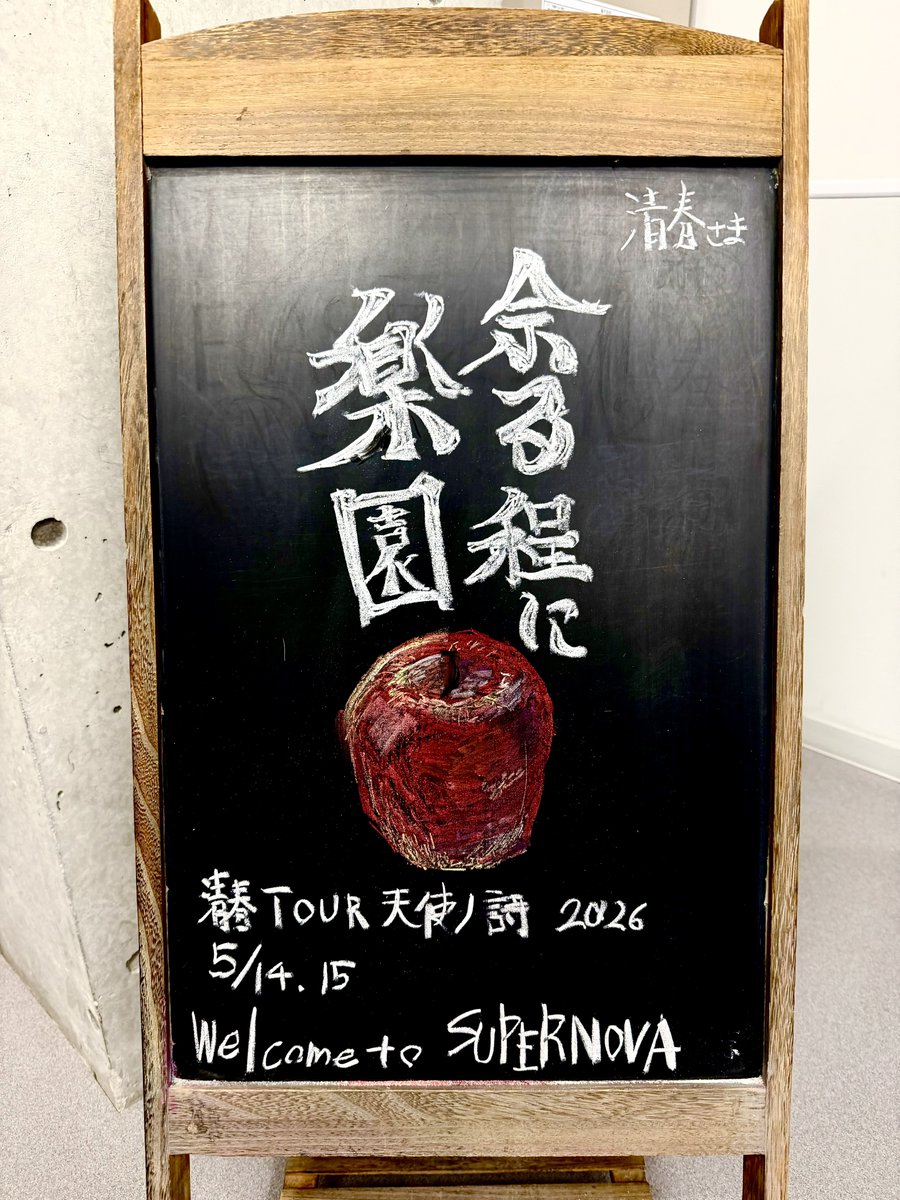 清春さま
余る程に
楽園
清春TOUR 天使ノ詩 2026
5/14.15
Welcome to SUPERNOVA